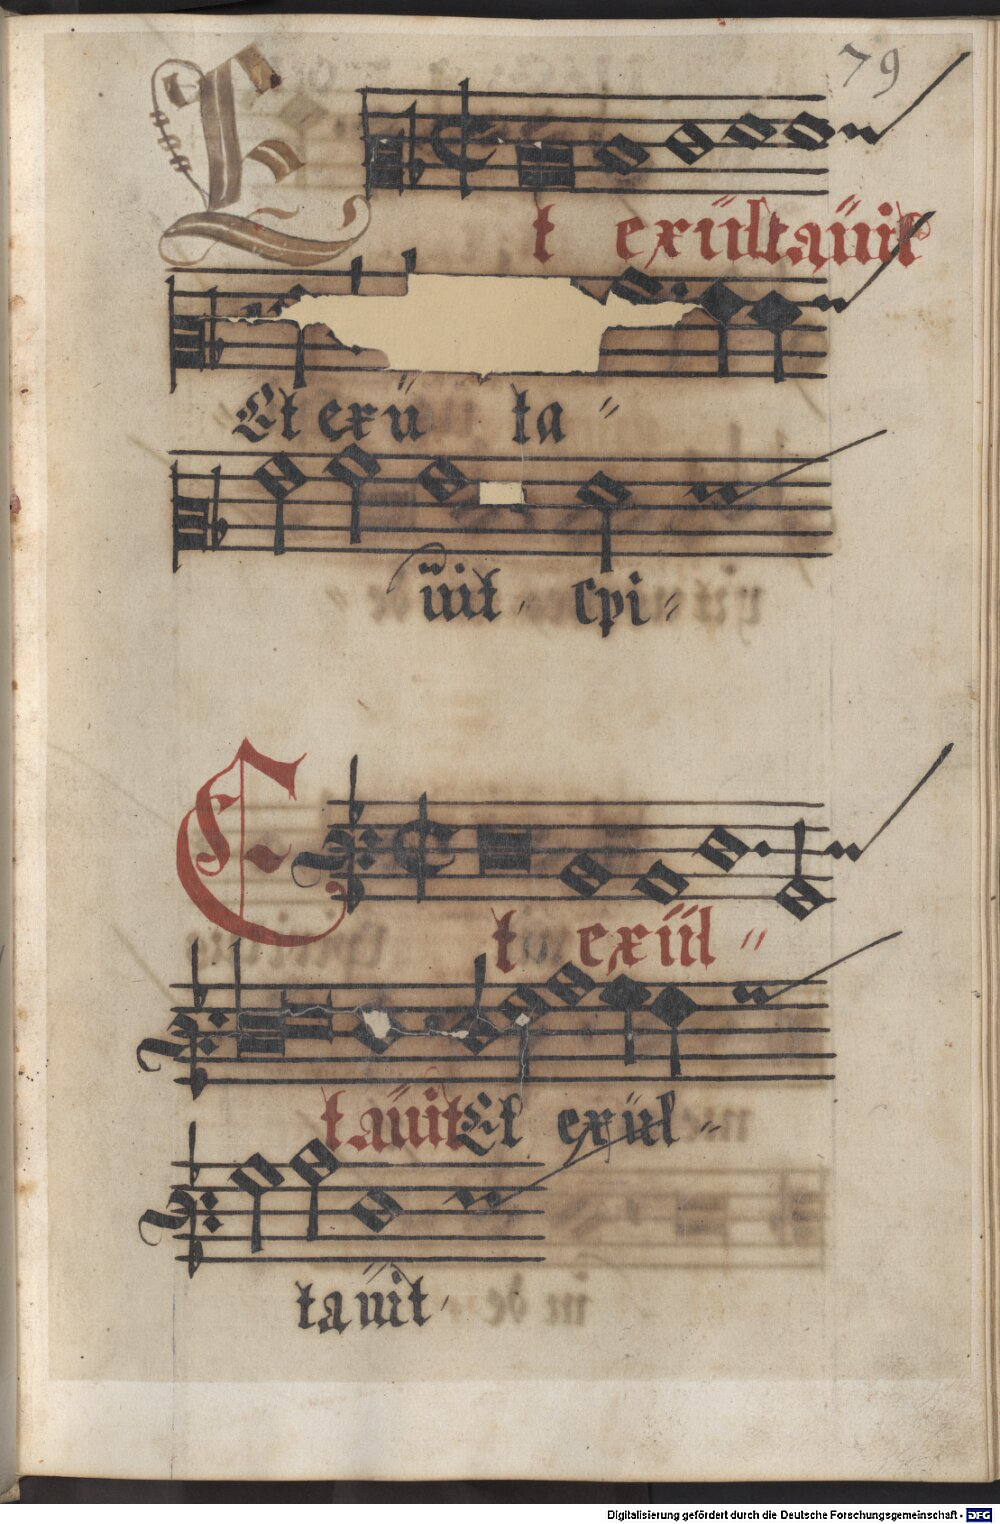 79
Et exultauit
Et exu ta
uit spi
Et exul
tauit Et exul
tauit
Digitalisierung gefördert durch die Deutsche Forschungsgemeinschaft - DFG